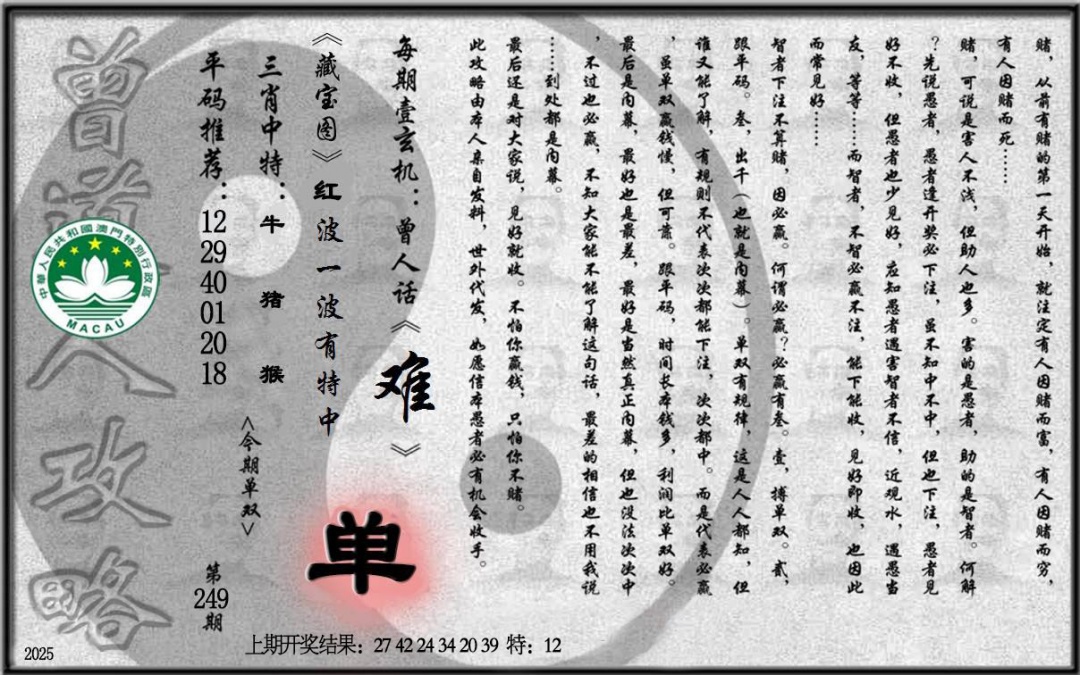 赌，从前有赌的第一天开始，就注定有人因赌而富，有人因赌而穷，
有人因赌而死……
赌，可说是害人不浅，但助人也多。害的是愚者，助的是智者。何解
？先说愚者，愚者逢开奖必下注，虽不知中不中，但也下注，愚者见
好不收，但愚者也少见好，应知愚者遇害智者不信，近观水，遇愚当
友，等等……而智者，不智必赢不注，能下能收，见好即收，也因此
而常见好……
智者下注不算赌，因必赢。何谓必赢？必赢有叁。壹，搏单双。贰，
跟平码。叁，出千（也就是内幕）。单双有规律，这是人人都知，但
谁又能了解，有规则不代表次次都能下注，次次都中。而是代表必赢
，虽单双赢钱慢，但可靠。跟平码，时间长本钱多，利润比单双好。
最后是内幕，最好也是最差，最好是当然真正内幕，但也没法次次中
，不过也必赢，不知大家能不能了解这句话，最差的相信也不用我说
……到处都是内幕。
最后还是对大家说，见好就收。不怕你赢钱，只怕你不赌。
此攻略由本人亲自发料，世外代发，如愿信本愚者必有机会收手。
每期壹玄机：曾人话《难》
《藏宝图》红波一波有特中
单
三肖中特：牛 猪 猴
<今期单双>
平码推荐：12 29 40 01 20 18
第249期
曾道人攻略
中華人民共和國澳門特別行政區
MACAU
上期开奖结果：27 42 24 34 20 39 特：12
2025